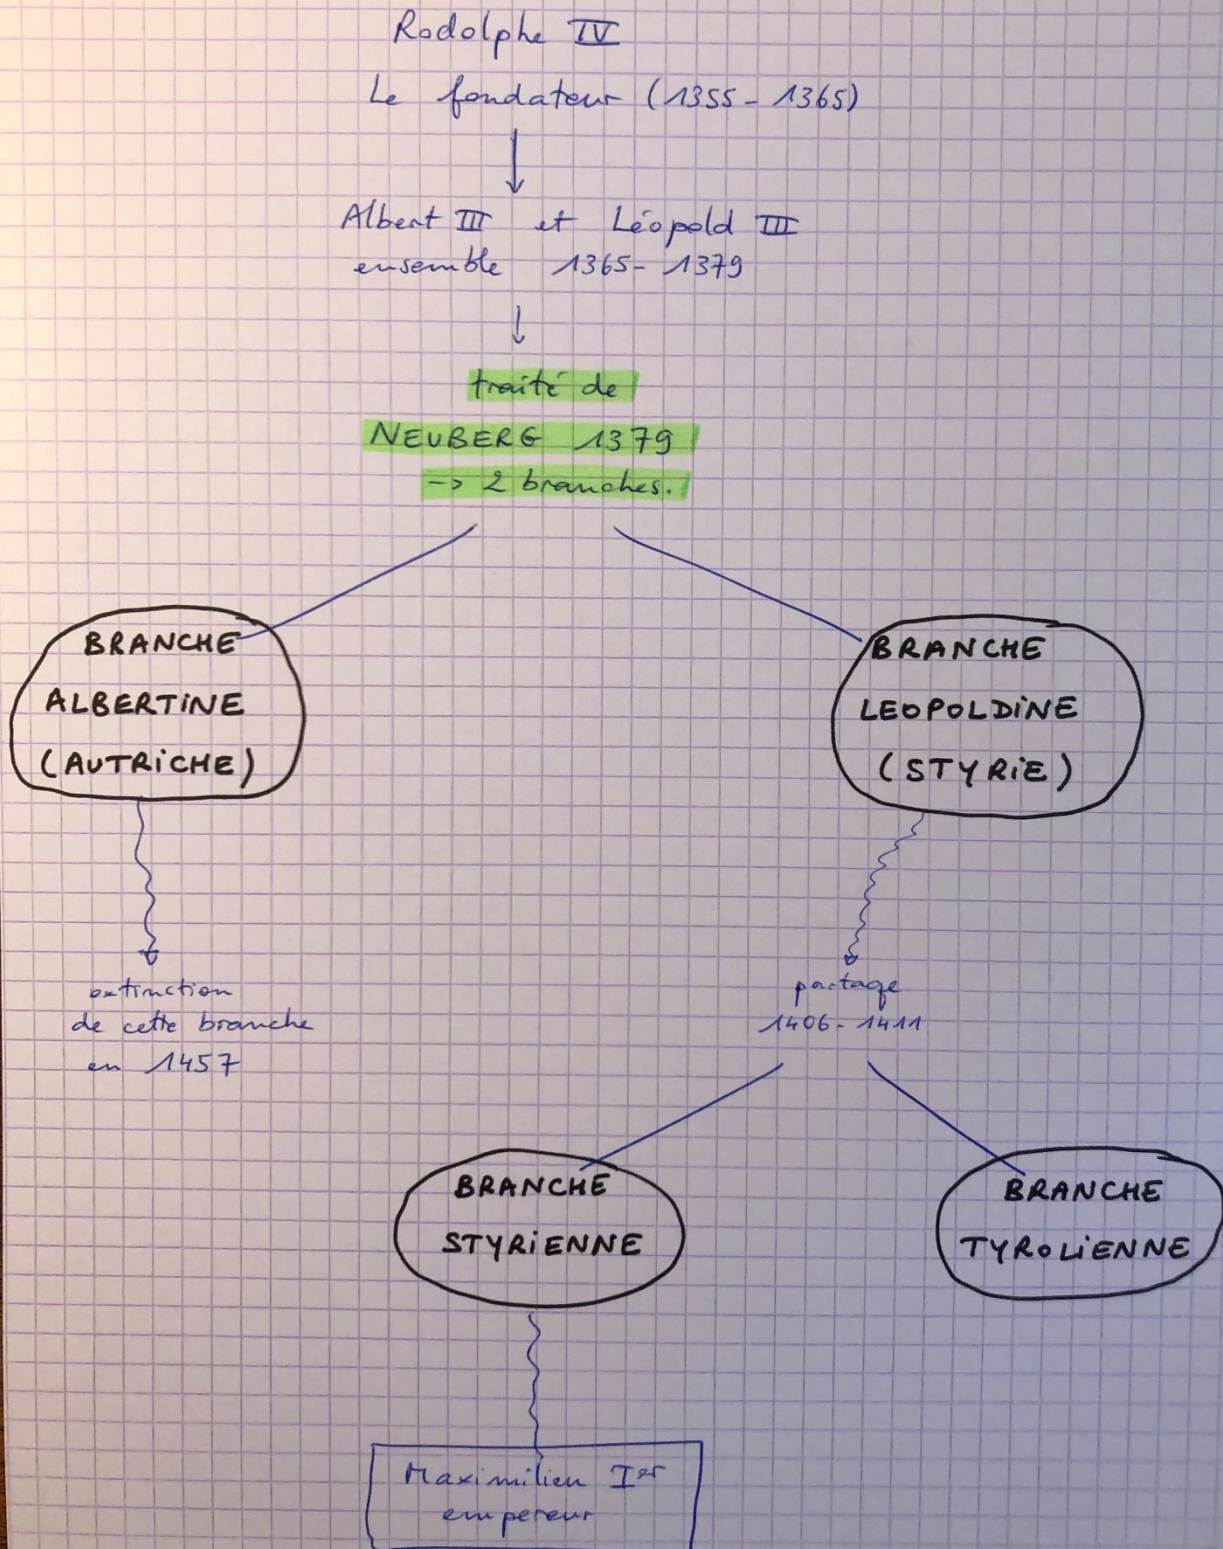 Rodolphe IV
Le fondateur (1355 - 1365)
Albert III et Léopold III
ensemble 1365 - 1379
traité de
NEUBERG 1379
-> 2 branches.
BRANCHE
ALBERTINE
(AUTRICHE)
BRANCHE
LEOPOLDINE
(STYRIE)
extinction
de cette branche
en 1457
partage
1406 - 1411
BRANCHE
STYRIENNE
BRANCHE
TYROLIENNE
Maximilien Ier
empereur